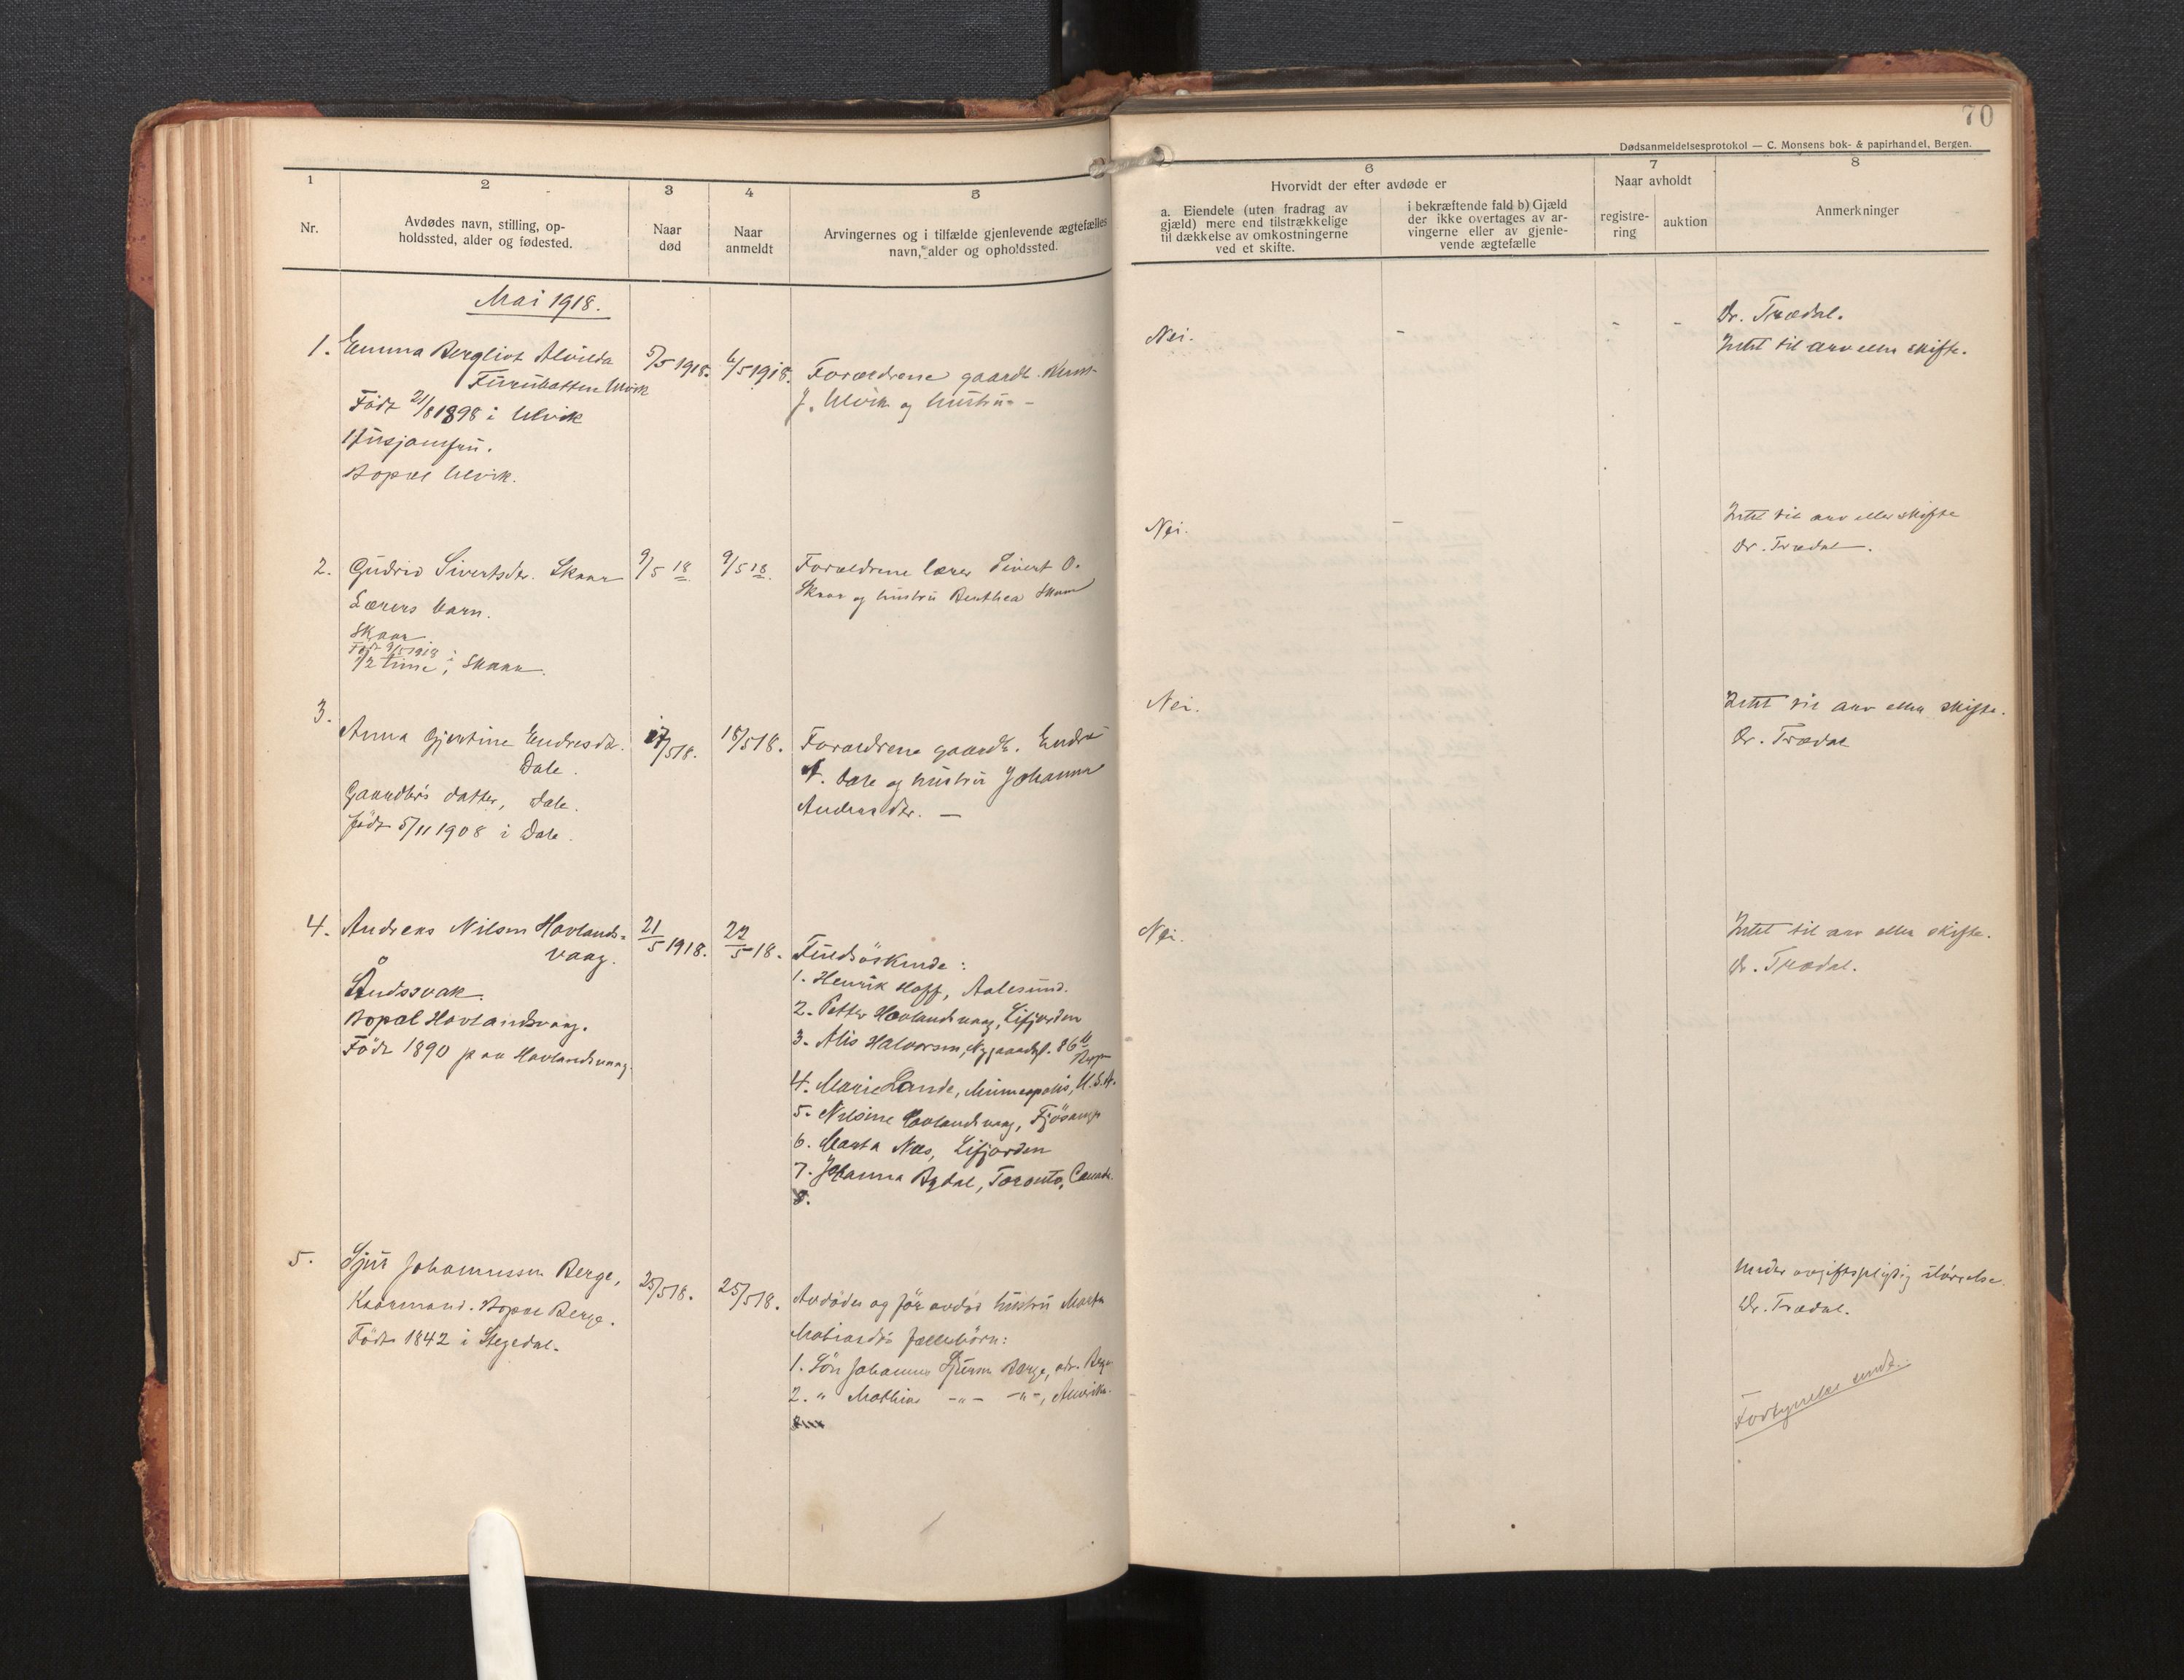 70
Dødsanmeldelsesprotokol — C. Monsens bok- & papirhandel, Bergen.
1
Nr.
2
Avdødes navn, stilling, op-
holdssted, alder og fødested.
3
Naar
død
4
Naar
anmeldt
5
Arvingernes og i tilfælde gjenlevende ægtefælles
navn, alder og opholdssted.
6
Hvorvidt der efter avdøde er
a. Eiendele (uten fradrag av
gjæld) mere end tilstrækkelige
til dækkelse av omkostningerne
ved et skifte.
i bekræftende fald b) Gjæld
der ikke overtages av ar-
vingerne eller av gjenle-
vende ægtefælle
7
Naar avholdt
registre-
ring
auktion
8
Anmerkninger
Mai 1918.
1. Emma Bergliot Alvilda
Ulvik
Født 21/8 1898 i Ulvik
Husjomfru.
Bopæl Ulvik.
5/5 1918.
6/5 1918.
Forældrene gaardb.
J. Ulvik og hustru -
Nei.
-
- -
Dr. Trædal.
Intet til arv eller skifte.
2. Gudrid Sivertsdtr. Skaar
Lærers barn.
Skaar
Født 9/5 1918 i
1/2 time, Skaar.
9/5 18
9/5 18.
Forældrene lærer Sivert O.
Skaar og hustru Berthea Skaar
Nei.
-
Intet til arv eller skifte
Dr. Trædal.
3.
Anna Gjertine Endresdtr.
Dale.
Gaardbr's datter, Dale.
født 5/11 1908 i Dale.
17/5 18.
18/5 18.
Forældrene gaardb. Endre
A. Dale og hustru Johanna
Andersdtr. —
Nei.
Intet til arv eller skifte.
Dr. Trædal
4. Andreas Nilsen Hovlands-
vaag.
Åndssvak.
Bopæl Hovlandsvaag.
Født 1890 paa Hovlandsvaag.
21/5 1918.
22/5 18.
Fuldsöskende:
1. Henrik Hoff, Aalesund.
2. Petter Hovlandsvaag, Lifjorden
3. Alis Halvorsen, Nygaardsg. 86
4. Marie Lande, Minneapolis, U.S.A.
5. Nilsine Hovlandsvaag, Fjösanger
6. Marta Næs, Lifjorden
7. Johanna Bydal, Toronto, Canada.
8.
Nei.
Intet til arv eller skifte.
Dr. Trædal.
5. Sjur Johannessen Berge,
Kaarmand. Bopæl Berge.
Født 1842 i Stegedal.
25/5 18.
25/5 18.
Avdødes og før avdøde hustru Marta
fællesbörn:
1. Søn Johannes Sjursen Berge, adr. Berge
2. " Mathias -"- -"-, Amerika.
Under avgiftspligtig størrelse.
Dr. Trædal.
sendt.